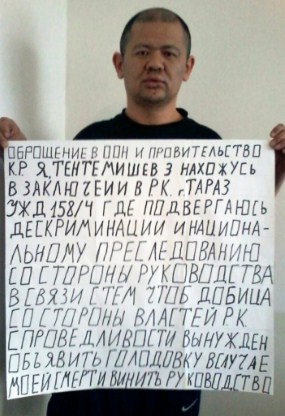 ОБРОЩЕНИЕ В ООН И ПРОВИТЕЛЬСТВО
К.Р Я. ТЕНТЕМИШЕВ З НАХОЖУСЬ
В ЗАКЛЮЧЕИИ В РК. г. ТАРАЗ
УЖД 158/4 ГДЕ ПОДВЕРГАЮСЬ
ДЕСКРИМИНАЦИИ И НАЦИОНА-
ЛЬНОМУ ПРЕСЛЕДОВАНИЮ
СО СТОРОНЫ РУКОВОДСТВА
В СВЯЗИ С ТЕМ ЧТОБ ДОБИЦА
СО СТОРОНЫ ВЛАСТЕЙ РК
СПРОВЕДЛИВОСТИ ВЫНУЖДЕН
ОБЪЯВИТЬ ГОЛОДОВКУ ВСЛУЧАЕ
МОЕЙ СМЕРТИ ВИНИТЬ РУКОВОДСТВО